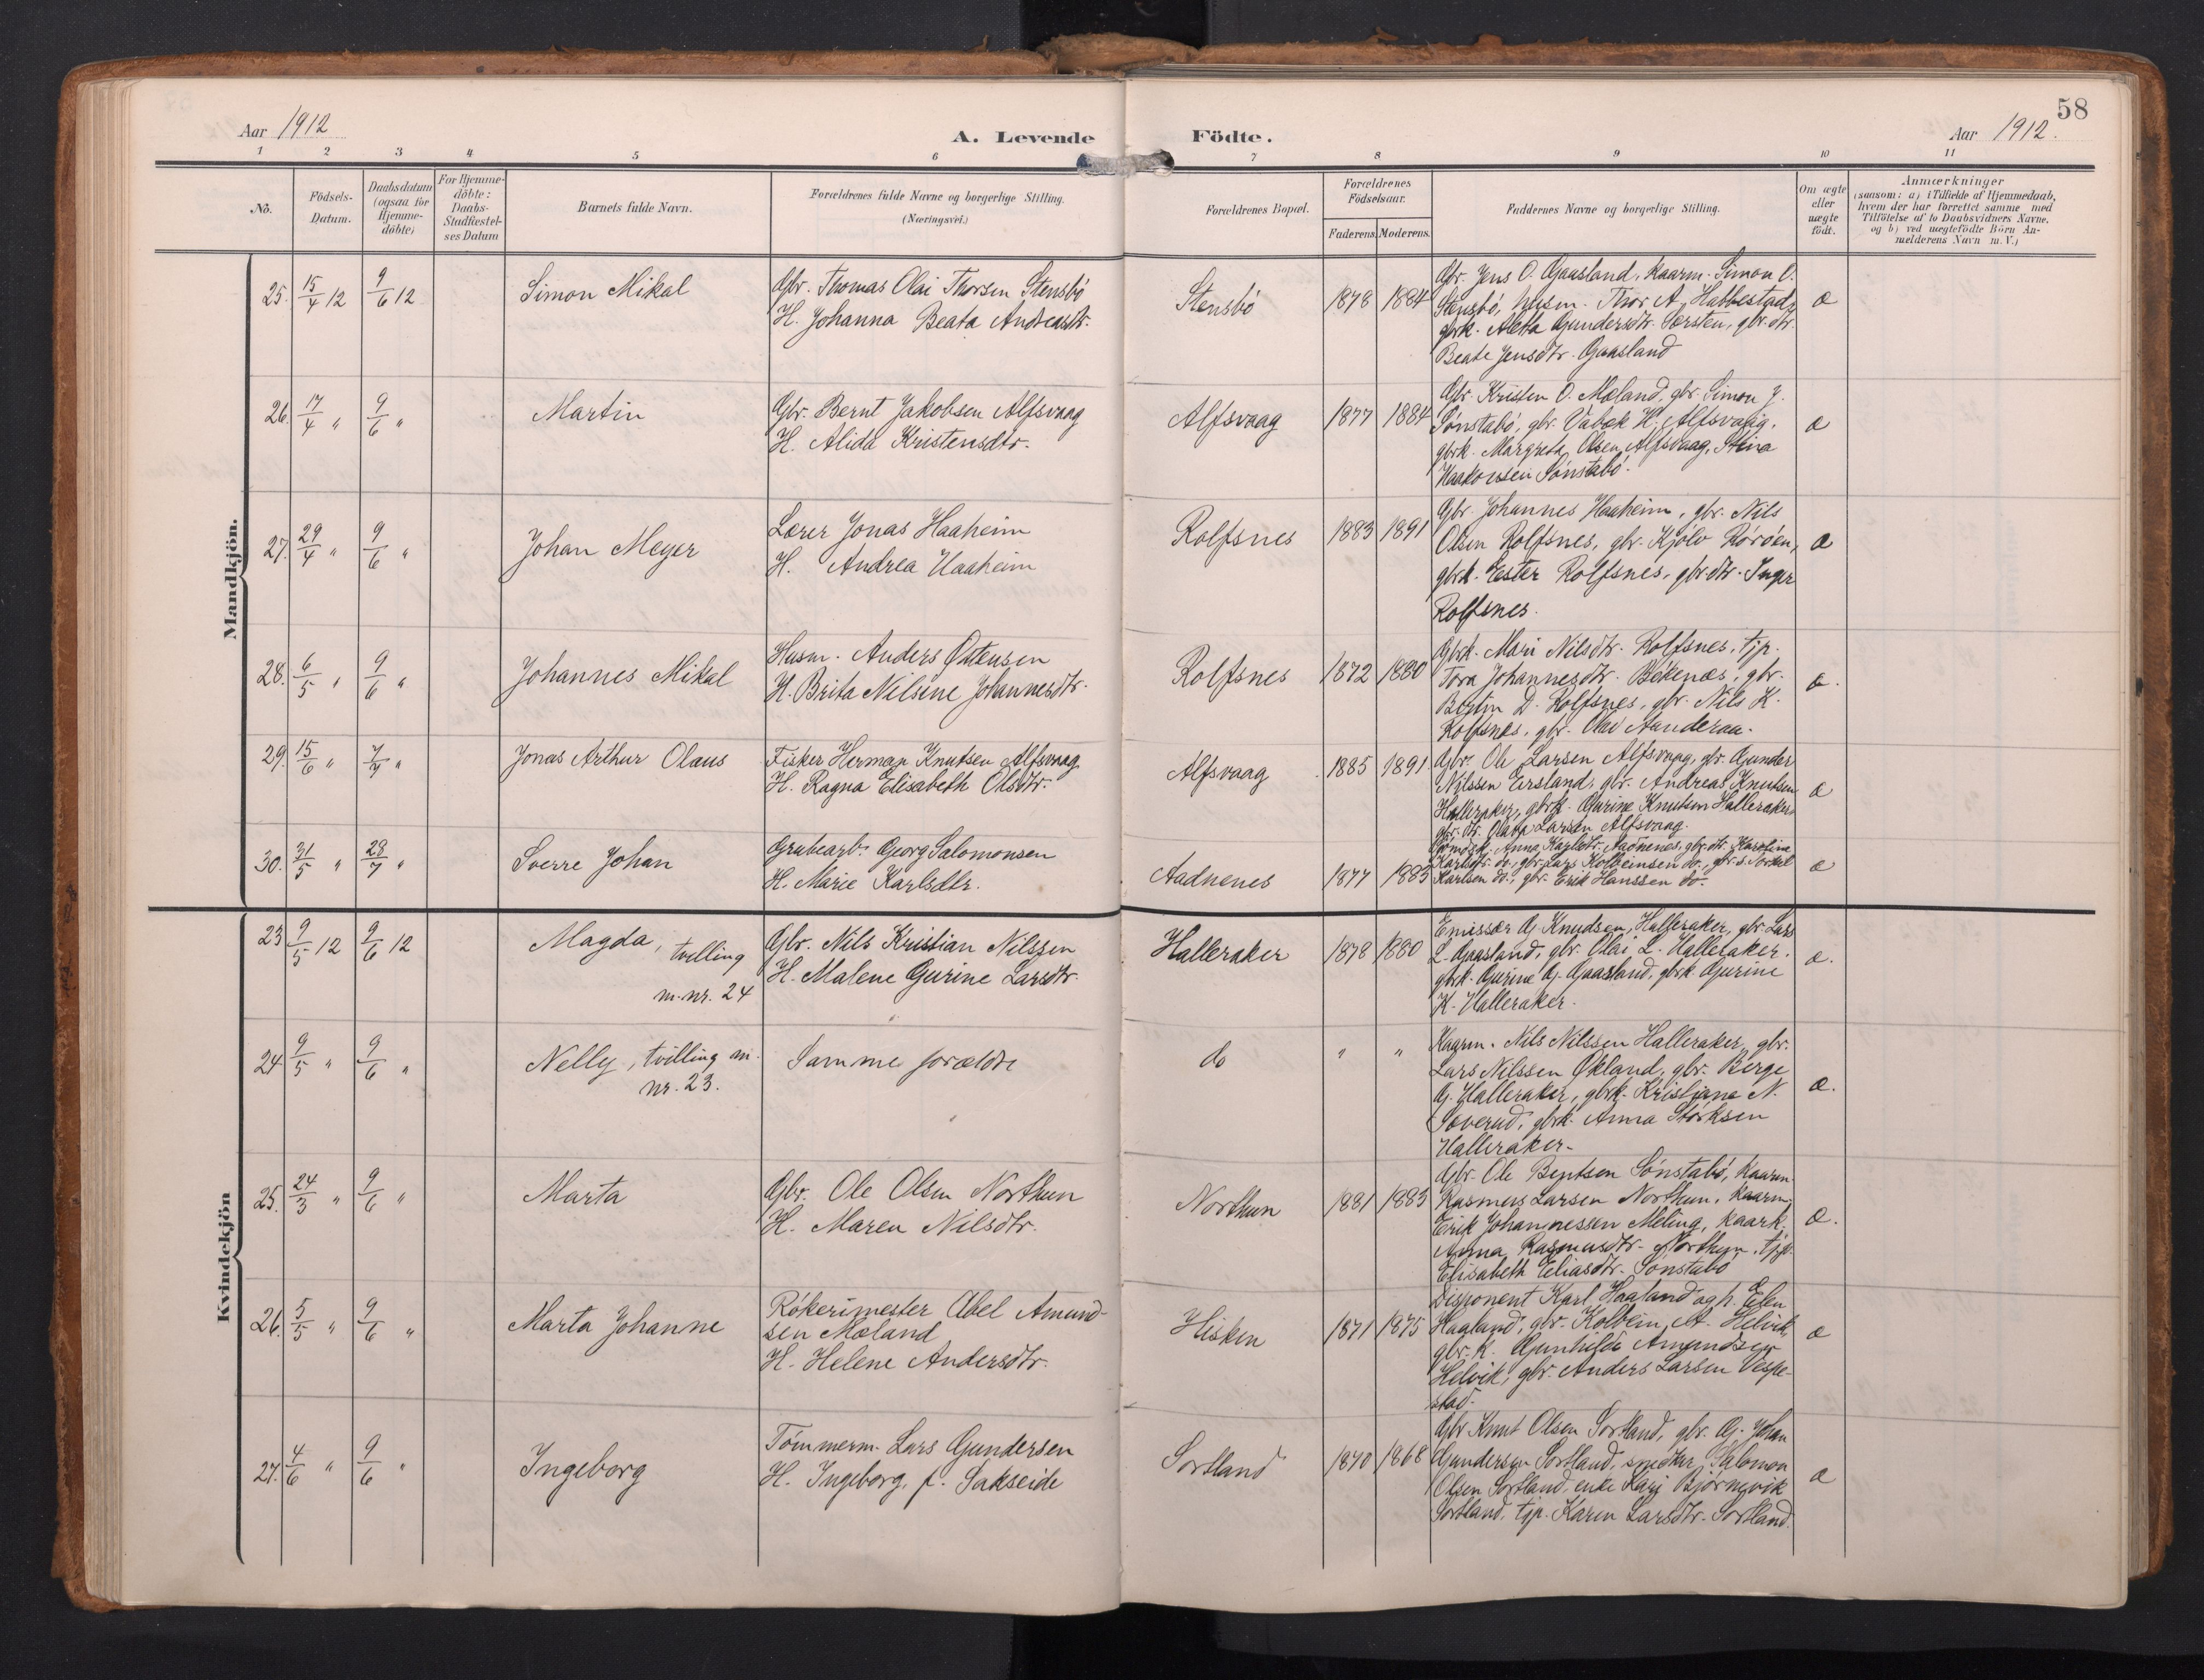 58
Aar 1912
A. Levende
Födte.
Aar 1912.
1 2 3 4 5 6 7 8 9 10 11
No.
Födsels-
Datum.
Daabsdatum
(ogsaa for
Hjemme-
döbte)
For Hjemme-
döbte:
Daabs-
Stadfæstel-
ses Datum
Barnets fulde Navn.
Forældrenes fulde Navne og borgerlige Stilling.
(Næringsvei.)
Forældrenes Bopæl.
Forældrenes
Födselsaar.
Faderens. Moderens.
Faddernes Navne og borgerlige Stilling.
Om ægte
eller
uægte
födt.
Anmærkninger
(saasom: a) i Tilfælde af Hjemmedaab,
hvem der har forrettet samme med
Tilföielse af to Daabsvidners Navne.
og b) ved uægtefödte Börn An-
melderens Navn m. V.)
Mandkjön.
25. 15/4 12 9/6 12
Simon Mikal
Gbr. Thomas Olai Thorsen Stensbö
H. Johanna Beata Andreasdtr.
Stensbö
1878 1884
Gbr. Jens O. Gaasland, kaarm. Simon O.
Stensbö, husm. Thor A. Habbestad,
gbrk. Aleta Gundersdtr. Sørsten, gbr.dtr.
Beate Jensdtr. Gaasland
æ
26. 17/4 " 9/6 "
Martin
Gbr. Bernt Jakobsen Alfsvaag
H. Alida Kristensdtr.
Alfsvaag
1877 1884
Gbr. Kristen O. Mæland, gbr. Simon J.
Sönstabö, gbr. H. Alfsvaag,
gbrk. Margreta Olsen Alfsvaag, Stina
Haakonsen Sönstabö.
æ
27. 29/4 " 9/6 "
Johan Meyer
Lærer Jonas Haaheim
H. Andrea Haaheim
Rolfsnes
1883 1891
Gbr. Johannes Haaheim, gbr. Nils
Olsen Rolfsnes, gbr. Kjölv Röröen,
gbrk. Ester Rolfsnes, gbr.dtr. Inger
Rolfsnes.
æ
28. 6/5 " 9/6 "
Johannes Mikal
Husm. Anders Østensen
H. Brita Nilsine Johannesdtr.
Rolfsnes
1872 1880
Gbrk. Mari Nilsdtr. Rolfsnes, tjp.
Tora Johannesdtr. Bökenæs, gbr.
D. Rolfsnes, gbr. Nils K.
Rolfsnes, gbr. Olai Aanderaa.
æ.
29. 15/6 " 7/7 "
Jonas Arthur Olaus
Fisker Herman Knutsen Alfsvaag
H. Ragna Elisabeth Olsdtr.
Alfsvaag
1885 1891
Gbr. Ole Larsen Alfsvaag, gbr. Gunder
Nilssen Eirsland, gbr. Andreas Knutsen
Halleraker, gbrk. Gurine Knutsen Halleraker,
gbr. dtr. Larsen Alfsvaag.
æ
30. 31/5 " 28/7 "
Sverre Johan
Grubearb. Georg Salomonsen
H. Marie Karlsdtr.
Aadnenes
1877 1883
Anna Karlsdtr. Aadnenes, gbr. dtr. Karoline
Karlsdtr. do., gbr. Lars Kolbeinsen do., gbr.s.
Karlsen do., gbr. Erik Hanssen do.
æ
Kvindekjön
23 9/5 12 9/6 12
Magda, tvilling
m. nr. 24
Gbr. Nils Kristian Nilssen
H. Malene Gurine Larsdtr.
Halleraker
1878 1880
Emissær G. Knudsen, Halleraker, gbr. Lars
L. Gaasland, gbr. Olai L. Halleraker.
gbrk. Gurine G. Gaasland, gbrk. Gurine
K. Halleraker.
æ.
24 9/5 " 9/6 "
Nelly, tvilling m.
nr. 23.
Samme forældre
do
" "
Kaarm. Nils Nilssen Halleraker, gbr.
Lars Nilssen Økland, gbr. Berge
G. Halleraker, gbrk. Kristiane N.
gbrk. Anna Störksen
Halleraker.
æ.
25. 24/3 " 9/6 "
Marta
Gbr. Ole Olsen Northun
H. Maren Nilsdtr.
Northun
1881 1883
Gbr. Ole Bentsen Sönstabö, kaarm.
Rasmus Larsen Northun, kaarm.
Erik Johannessen Meling, kaark.
Anna Rasmusdtr. Northun, tjp.
Elisabeth Eliasdtr. Sönstabö
æ.
26. 5/5 " 9/6 "
Marta Johanne
Rökerimester Abel Amund-
sen Mæland
H. Helene Andersdtr.
Hisken
1871 1875
Disponent Karl Haaland og h. Elen
Haaland, gbr. Kolbein A. Helvik,
gbr. k. Gunhilde Amundsen
Helvik, gbr. Anders Larsen Vespe-
stad.
æ
27. 4/6 " 9/6 "
Ingeborg
Tömmerm. Lars Gundersen
H. Ingeborg, f. Sakseide
Sortland
1870 1868
Gbr Knut Olsen Sortland, gbr. G. Johan
Gundersen Sortland, snedker Salomon
Olsen Sortland, enke Kari Björnevik
Sortland, tjp. Karen Larsdtr. Sortland.
æ